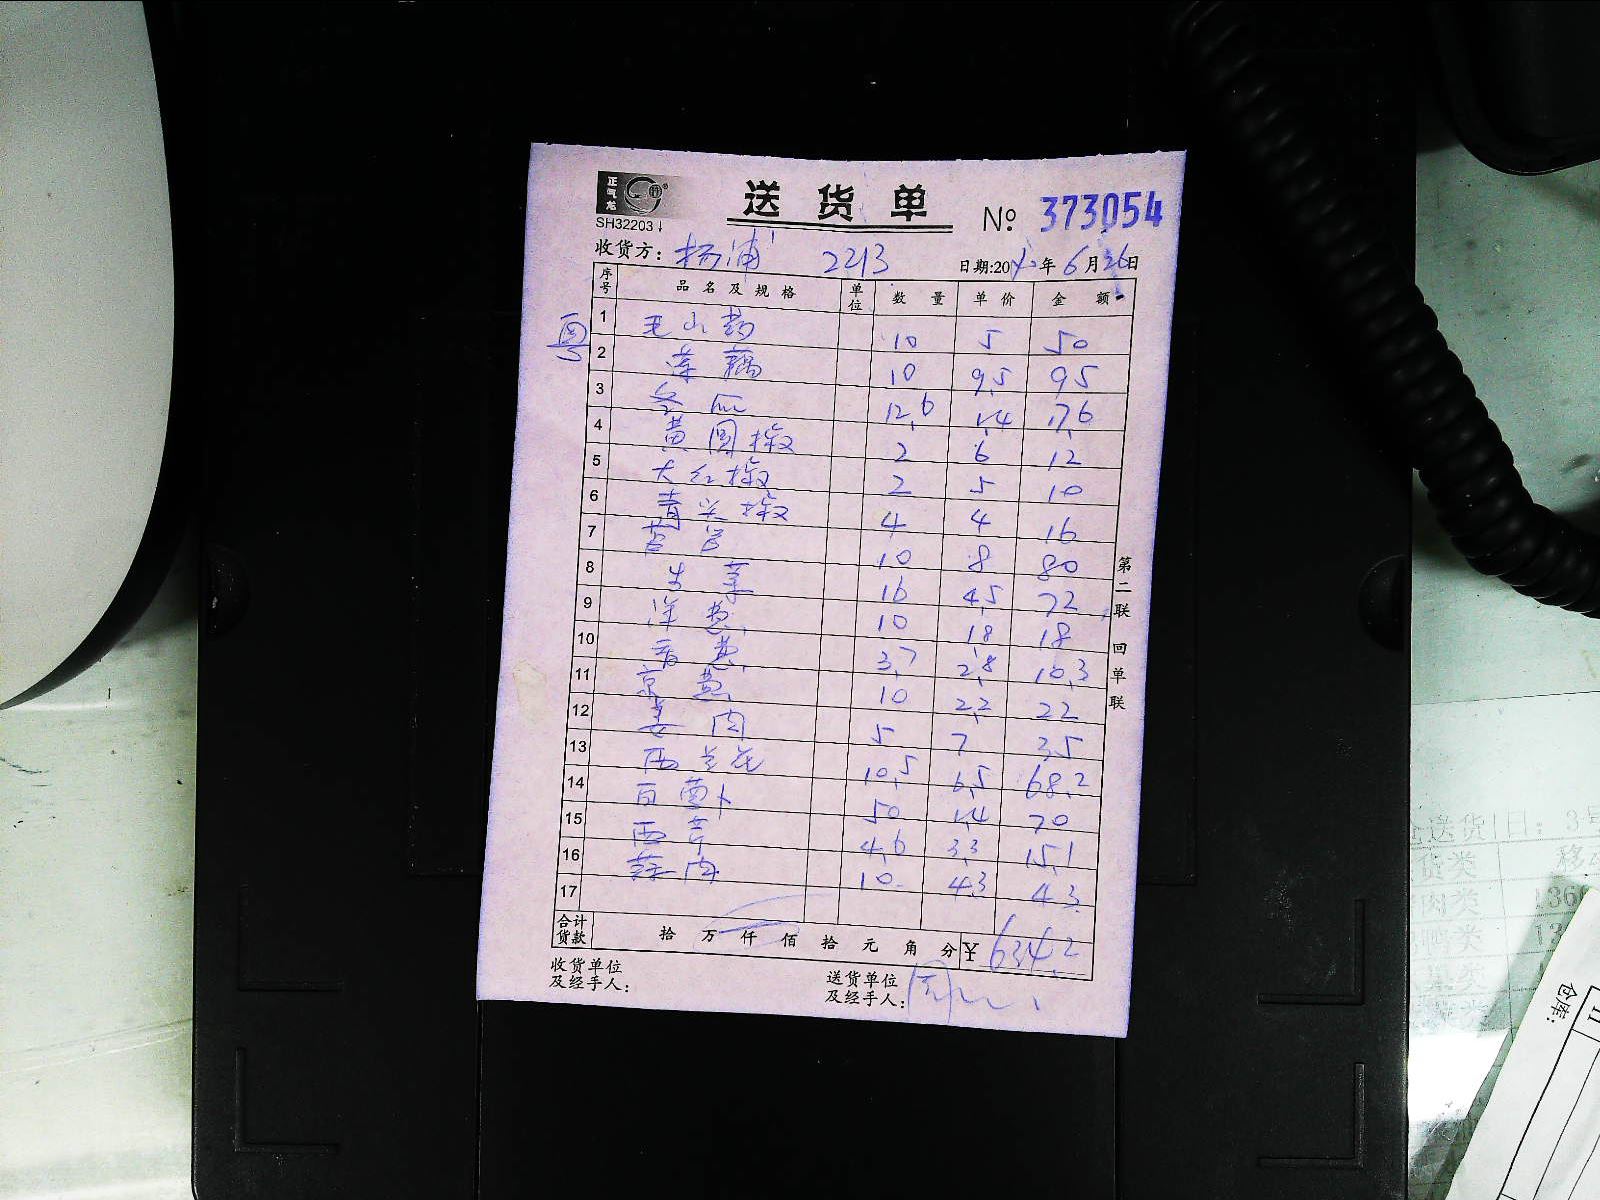 正气龙
SH32203
送货单
№ 373054
收货方: 杨浦 2213
日期:20 年 6 月 26 日
序号 品名及规格 单位 数量 单价 金额
粤
1 毛山药 10 5 50
2 莲藕 10 9.5 95
3 冬瓜 12.6 1.4 17.6
4 黄圆椒 2 6 12
5 大红椒 2 5 10
6 青尖椒 4 4 16
7 莴笋 10 8 80
8 生菜 16 4.5 72
9 洋葱 10 1.8 18
10 香葱 3.7 2.8 10.3
11 京葱 10 2.2 22
12 姜肉 5 7 35
13 西兰花 10.5 6.5 68.2
14 白萝卜 50 1.4 70
15 西芹 4.6 3.3 15.1
16 蒜肉 10 4.3 43
17
合计货款 拾 万 仟 佰 拾 元 角 分 ¥ 634.2
收货单位
及经手人:
送货单位
及经手人: 周
第二联 回单联
送货1日: 3号
货类
肉类 136
仓库: